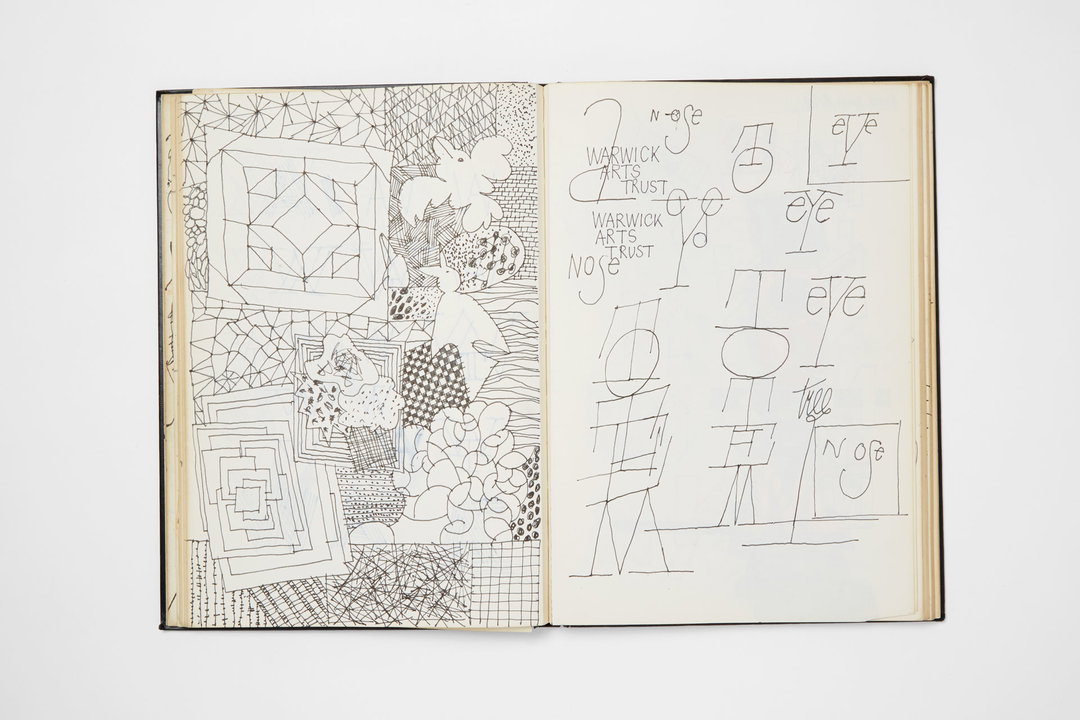 Nose
WARWICK
ARTS
TRUST
WARWICK
ARTS
TRUST
Nose
eye
eye
eye
eye
tree
Nose